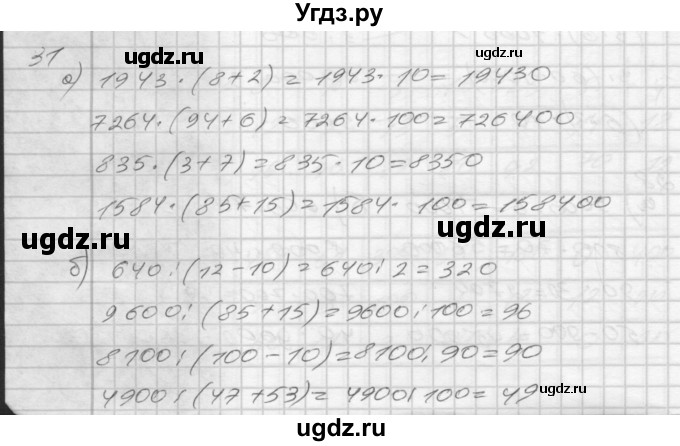 Угдз.ру
31
а) 1943 · (8+2) = 1943 · 10 = 19430
7264 · (94+6) = 7264 · 100 = 726400
835 · (3+7) = 835 · 10 = 8350
1584 · (85+15) = 1584 · 100 = 158400
б) 640 : (12-10) = 640 : 2 = 320
9600 : (85+15) = 9600 : 100 = 96
8100 : (100-10) = 8100 : 90 = 90
4900 : (47+53) = 4900 : 100 = 49
ugdz.ru
ugdz.ru
ugdz.ru
ugdz.ru
ugdz.ru
ugdz.ru
ugdz.ru